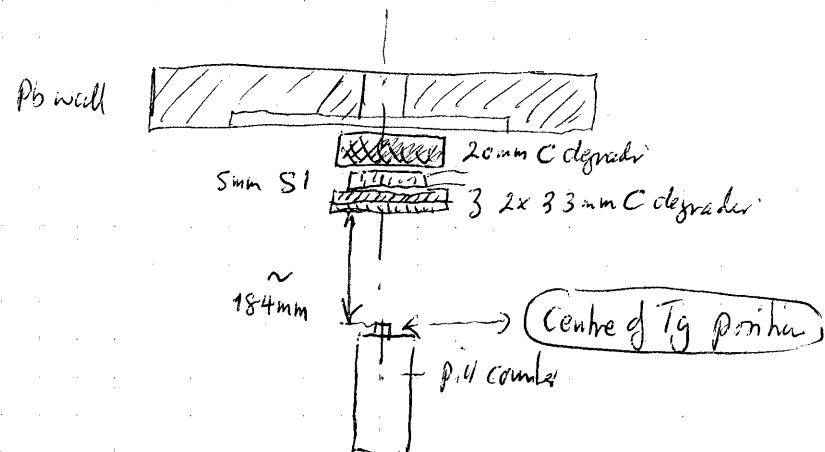 Pb wall
20mm C degrader
5mm S1
2x 33mm C degrader
~
184mm
Centre of Tg position
pill counter